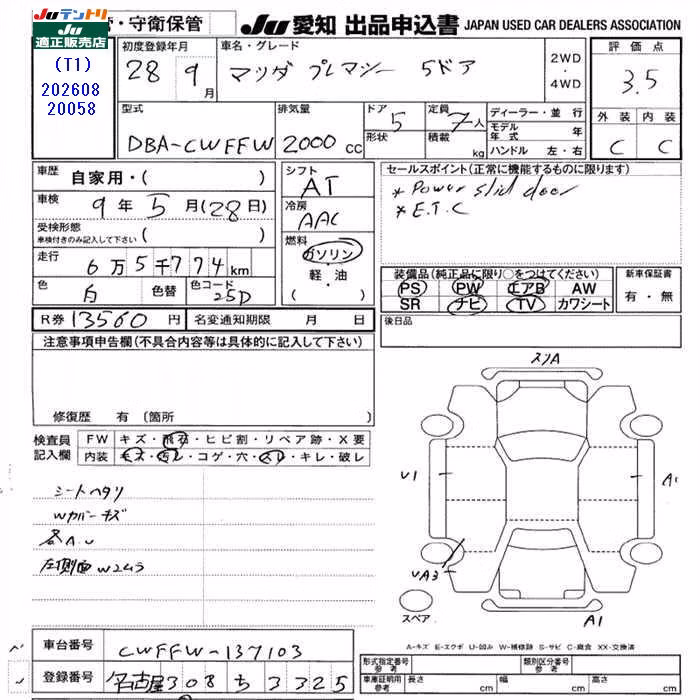 JUテントリ
JU
適正販売店
(T1)
202608
20058
・守衛保管
JU 愛知 出品申込書 JAPAN USED CAR DEALERS ASSOCIATION
初度登録年月 28 9月
車名・グレード マツダ プレマシー 5ドア
2WD・4WD
評価点 3.5
外装 内装
C C
型式 DBA-CWFFW
排気量 2000cc
ドア 5
形状
定員 7人
積載 kg
ディーラー・並行
モデル年式 年
ハンドル 左・右
車歴 自家用・( )
車検 9年5月(28日)
受検形態 ( )
車検付きのみ記入して下さい
走行 6万5千774km
色 白 色替 色コード 25D
シフト AT
冷房 AAC
燃料 ガソリン・軽・油 ( )
セールスポイント(正常に機能するものに限ります)
* Power slid door
* E.T.C
装備品(純正品に限り○をつけてください)
PS PW エアB AW
SR ナビ TV カワシート
新車保証書
有・無
R券 13560円 名変通知期限 月 日
後日品
注意事項申告欄(不具合内容等は具体的に記入して下さい)
修復歴 有(箇所 )
検査員記入欄
FW キズ・飛石・ヒビ割・リペア跡・X要
内装 キズ・汚レ・コゲ・穴・スレ・キレ・破レ
シートヘタリ
Wカバーキズ
各A.U
左側面W2ムラ
スリA
U1
A1
UA3
スペア
A1
A-キズ E-エクボ U-凹み W-補修跡 S-サビ C-腐食 XX-交換済
車台番号 CWFFW-137103
登録番号 名古屋308ち3325
形式指定番号 参考
類別区分番号 参考
車庫証明用 参考 長さ cm 幅 cm 高さ cm